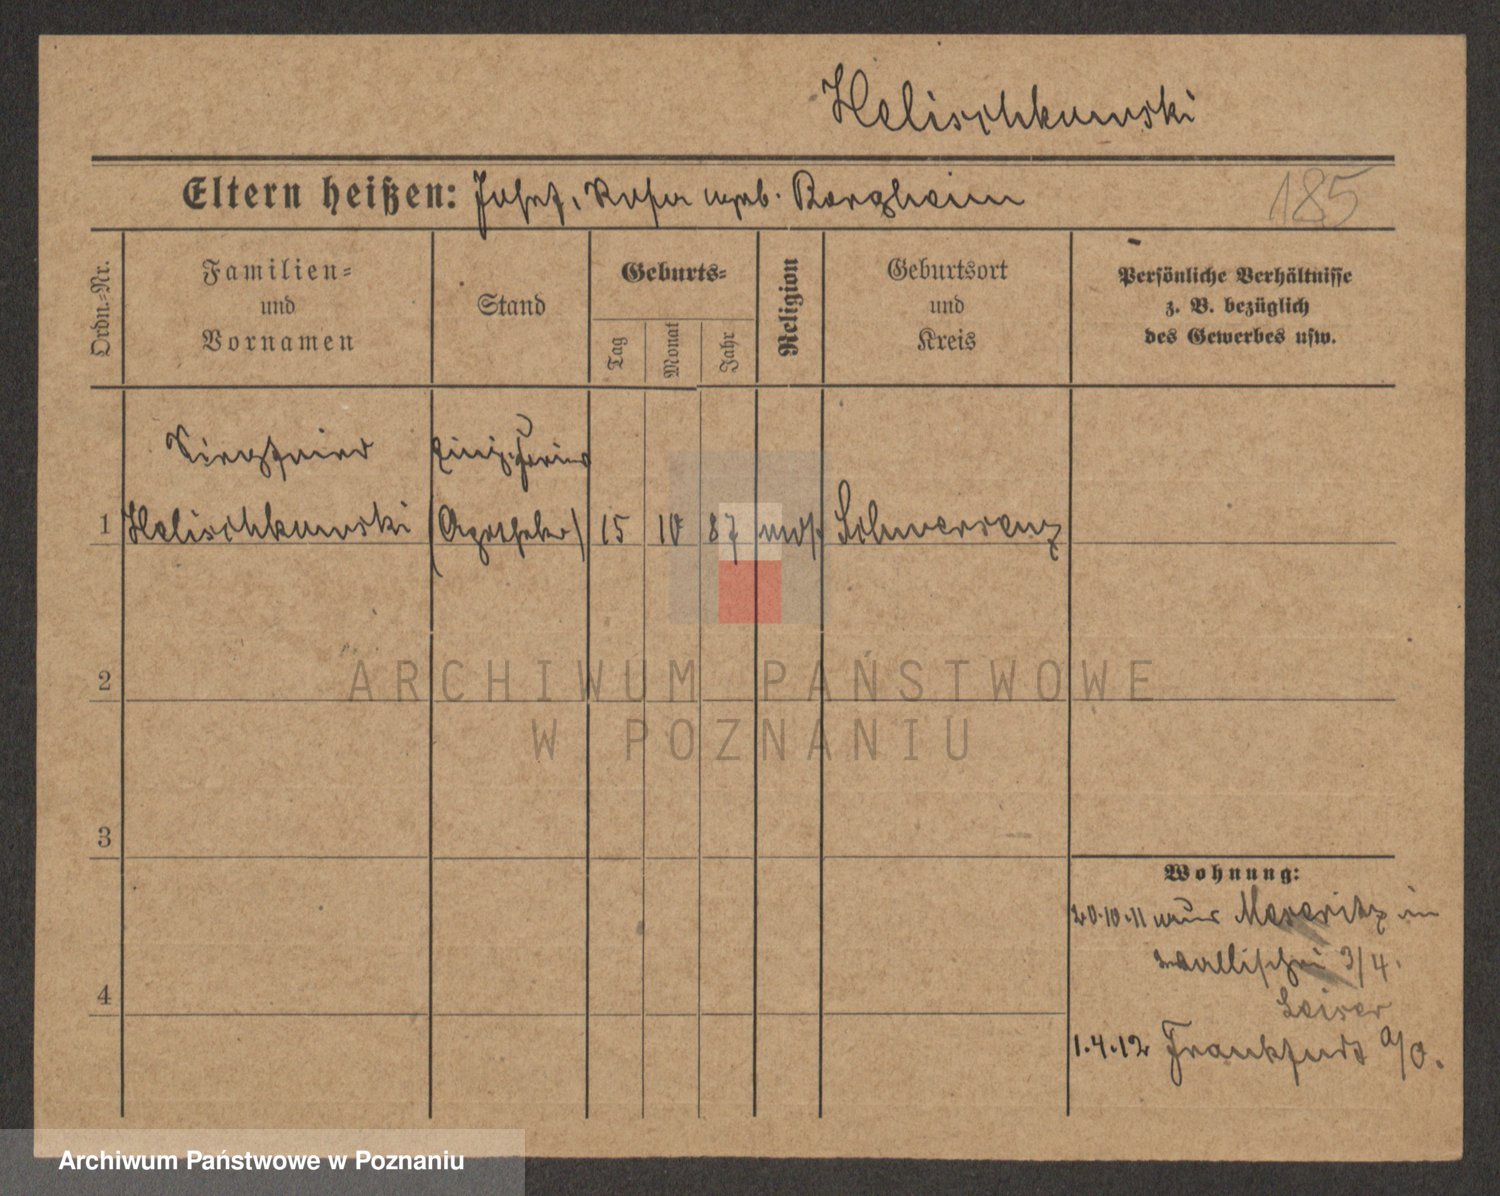 Helischkowski
Eltern heißen: Josef, Rosa geb. Bergheim
185
Ordn.-Nr.
Familien-
und
Vornamen
Stand
Geburts-
Tag
Monat
Jahr
Religion
Geburtsort
und
Kreis
Persönliche Verhältnisse
z. B. bezüglich
des Gewerbes usw.
Siegfried
1 Helischkowski (Apotheker) 15 10 87 mos. Schwersenz
2
ARCHIWUM PAŃSTWOWE
W POZNANIU
3
Wohnung:
20.10.11 aus Meseritz in
Wallischei 3/4.
4
Leiser
1.4.12 Frankfurt a/O.
Archiwum Państwowe w Poznaniu